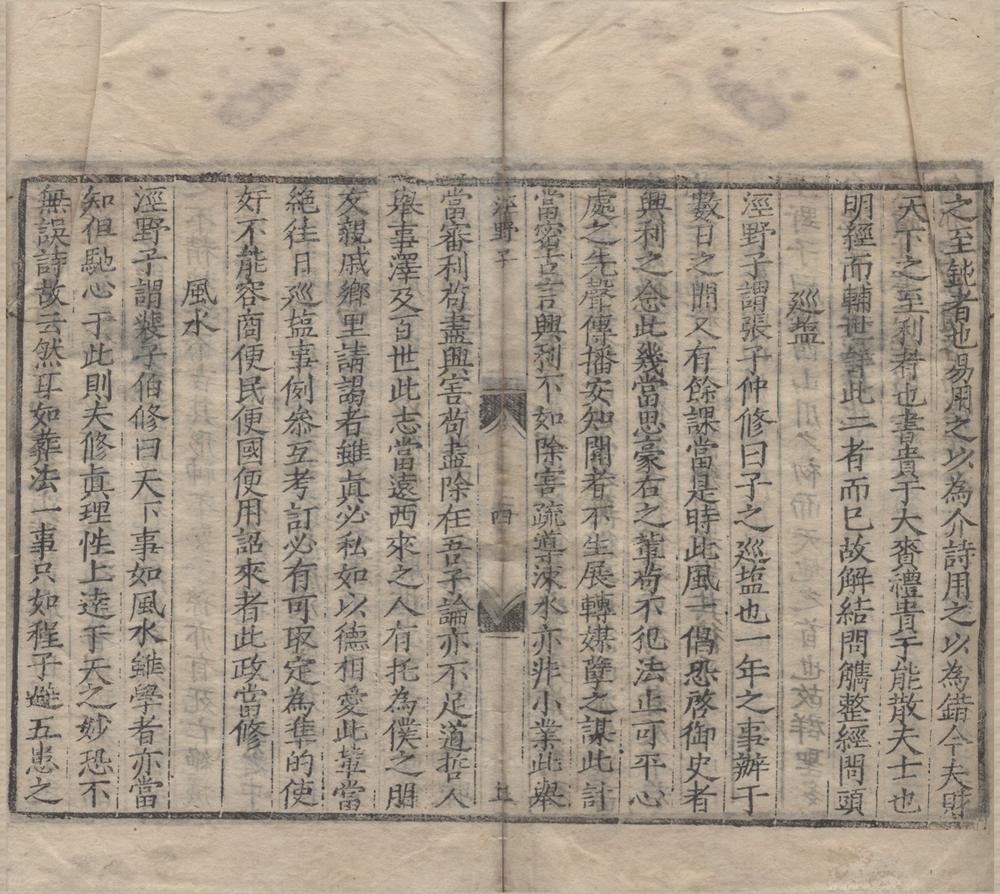 之至鈍者也易用之以為介詩用之以為錯今夫財
天下之至利者也書貴于大賚禮貴于能散夫士也
明經而輔世等此二者而已故解結問觿整經問頭
巡塩
涇野子謂張子仲修曰子之巡塩也一年之事辦于
數日之間又有餘課當是時此風一倡恐啓御史者
興利之念此幾當思豪右之輩苟不犯法止可平心
處之先聲傳播安知聞者不生展轉媒孽之謀此計
當審古言興利不如除害疏導涑水亦非小業此舉
涇野子
四
上
當審利苟盡興害苟盡除在吾子論亦不足道哲人
舉事澤及百世此志當遠西來之人有托為僕之朋
友親戚鄉里請謁者雖眞必私如以德相愛此輩當
絕往日巡塩事例叅互考訂必有可取定為準的使
奸不能容商便民便國便用詔來者此政當修
風水
涇野子謂裴子伯修曰天下事如風水雖學者亦當
知但馳心于此則夫修眞理性上達于天之妙恐不
無誤詩故云然耳如葬法一事只如程子避五患之